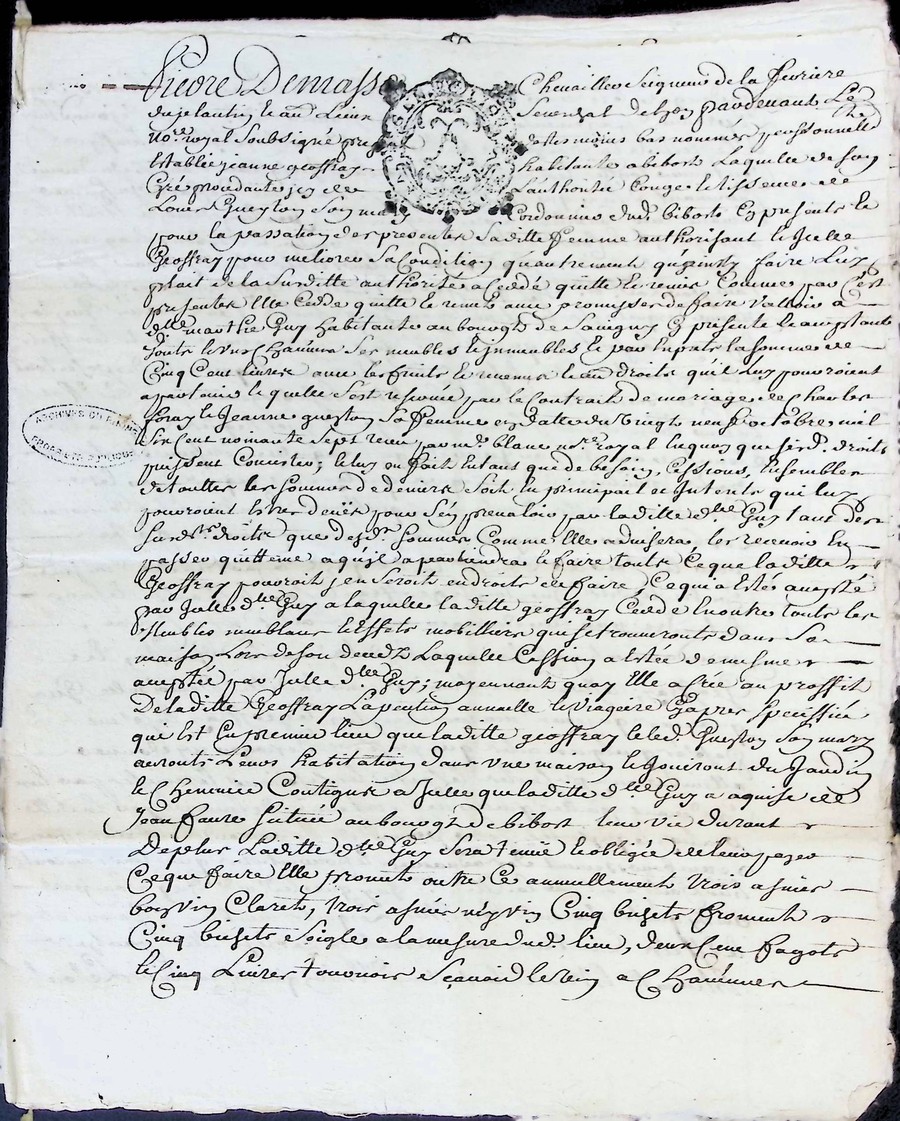 Pierre Demasso Chevallier Seigneur de la ferriere
du plantin le and Lieux Seneschal de Lyon pardevant Le
No.re royal Soubsigné pre et tesmoins bas nommés personnelle
establie jeanne geoffray habitante a bibost Laquelle de son
Gré procedante de L'authorité Congé et lissence de
Louis Gueyton Son mary Cordonnier dud. bibost Icy present Et
pour la passation des presentes Saditte femme authorisant Icelle
Geoffray pour meliorer Sa Condition quautrement qu'ainsy faire Luy
plait de la Surditte authorité a Ceddé quitte et remis Comme par Ces
presentes Elle Cedde quitte et remet avec promesse de faire valloir a
d.lle marthe Guy habitante au bourgt de Savigny Icy presente et acceptante
touts et uns Chacuns Ses meubles et immeubles Et par Exprès la somme de
Cinq Cent livres avec les fruits et revenus et droits qu'il Luy pourroient
apartenir et quelle S'est reservée par le Contrait de mariage de Charles
foray et Jeanne gueyton Sa femme en datte du vingt neuf octobre mil
Six Cent nonante Sept receu par m.e blanc no.re royal Enquoy que Sesd. droits
puissent Consister; et luy En fait Entant que de besoin, Cessions, Ensemble
de touttes les Sommes de deniers Soit En principal et Interets qui luy
pourroient Estre deües pour S'en prevaloir par laditte d.lle Guy tant des
Susd. droits que desd. Sommes Comme Elle advisera les recevoir En
passer quittance a qu'il apartiendra et faire toutte Ce que laditte
Geoffray pouvoit Et Seroit en droits de faire, Ce qui a Esté accepté
par Icelle d.lle Guy a laquelle laditte geoffray Cedde En outre touts les
Meubles meublans et Effets mobilliers qui Se trouveronts dans Sa
maison Lors de son decedz Laquelle Cession a Estée de mesme
acceptée par Icelle d.lle Guy; moyennant quoy Elle a Crée au proffit
De laditte Geoffray La pention annuelle et viagere Cy apres Speciffiée
qui Est En premier lieu que laditte geoffray et led. Gueyton Son mary
auronts Leurs habitation dans une maison et Jouiront du Jardin
et Cheneviere Contigus a Icelle que laditte d.lle Guy a aquise de
Jean faure Scituée au bourgt de bibost leur vie durant
De plus Laditte d.lle Guy Sera tenüe et obligée de leur payer
Ce que faire Elle promet outre Ce annuellement trois asnées
bon vin Claret, trois asnées népvin Cinq bichets froment
Cinq bichets Seigle a la mesure dud. lieu, deux Cent fagots
et Cinq Livres tournois Sçavoir le vin a Chacunes
ARCHIVES DU RHÔNE